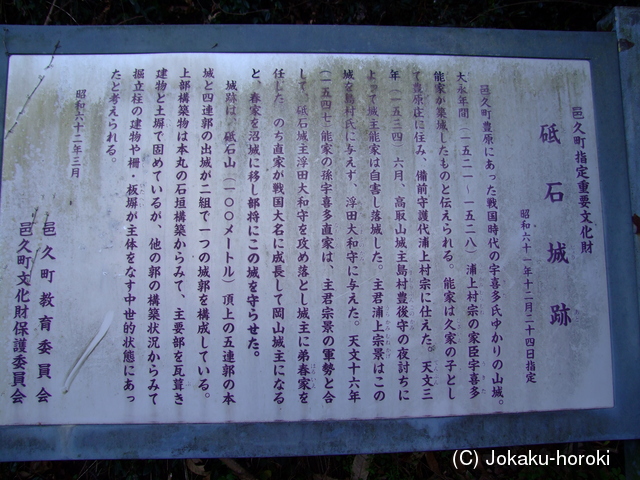 邑久町指定重要文化財
砥石城跡
昭和六十一年十二月二十四日指定
邑久町豊原にあった戦国時代の宇喜多氏ゆかりの山城。
大永年間（一五二一～一五二八）浦上村宗の家臣宇喜多
能家が築城したものと伝えられる。能家は久家の子とし
て豊原庄に住み、備前守護代浦上村宗に仕えた。天文三
年（一五三四）六月、高取山城主島村豊後守の夜討ちに
よって城主能家は自害し落城した。主君浦上宗景はこの
城を島村氏に与えず、浮田大和守に与えた。天文十六年
（一五四七）能家の孫宇喜多直家は、主君宗景の軍勢と合
して、砥石城主浮田大和守を攻め落とし城主に弟春家を
任した。のち直家が戦国大名に成長して岡山城主になる
と、春家を沼城に移し部将にこの城を守らせた。
城跡は、砥石山（一〇〇メートル）頂上の五連郭の本
城と四連郭の出城が二組で一つの城郭を構成している。
上部構築物は本丸の石垣構築からみて、主要部を瓦葺き
建物と土塀で固めているが、他の郭の構築状況からみて
掘立柱の建物や柵・板塀が主体をなす中世的状態にあっ
たと考えられる。
昭和六十二年三月
邑久町教育委員会
邑久町文化財保護委員会
(C) Jokaku-horoki